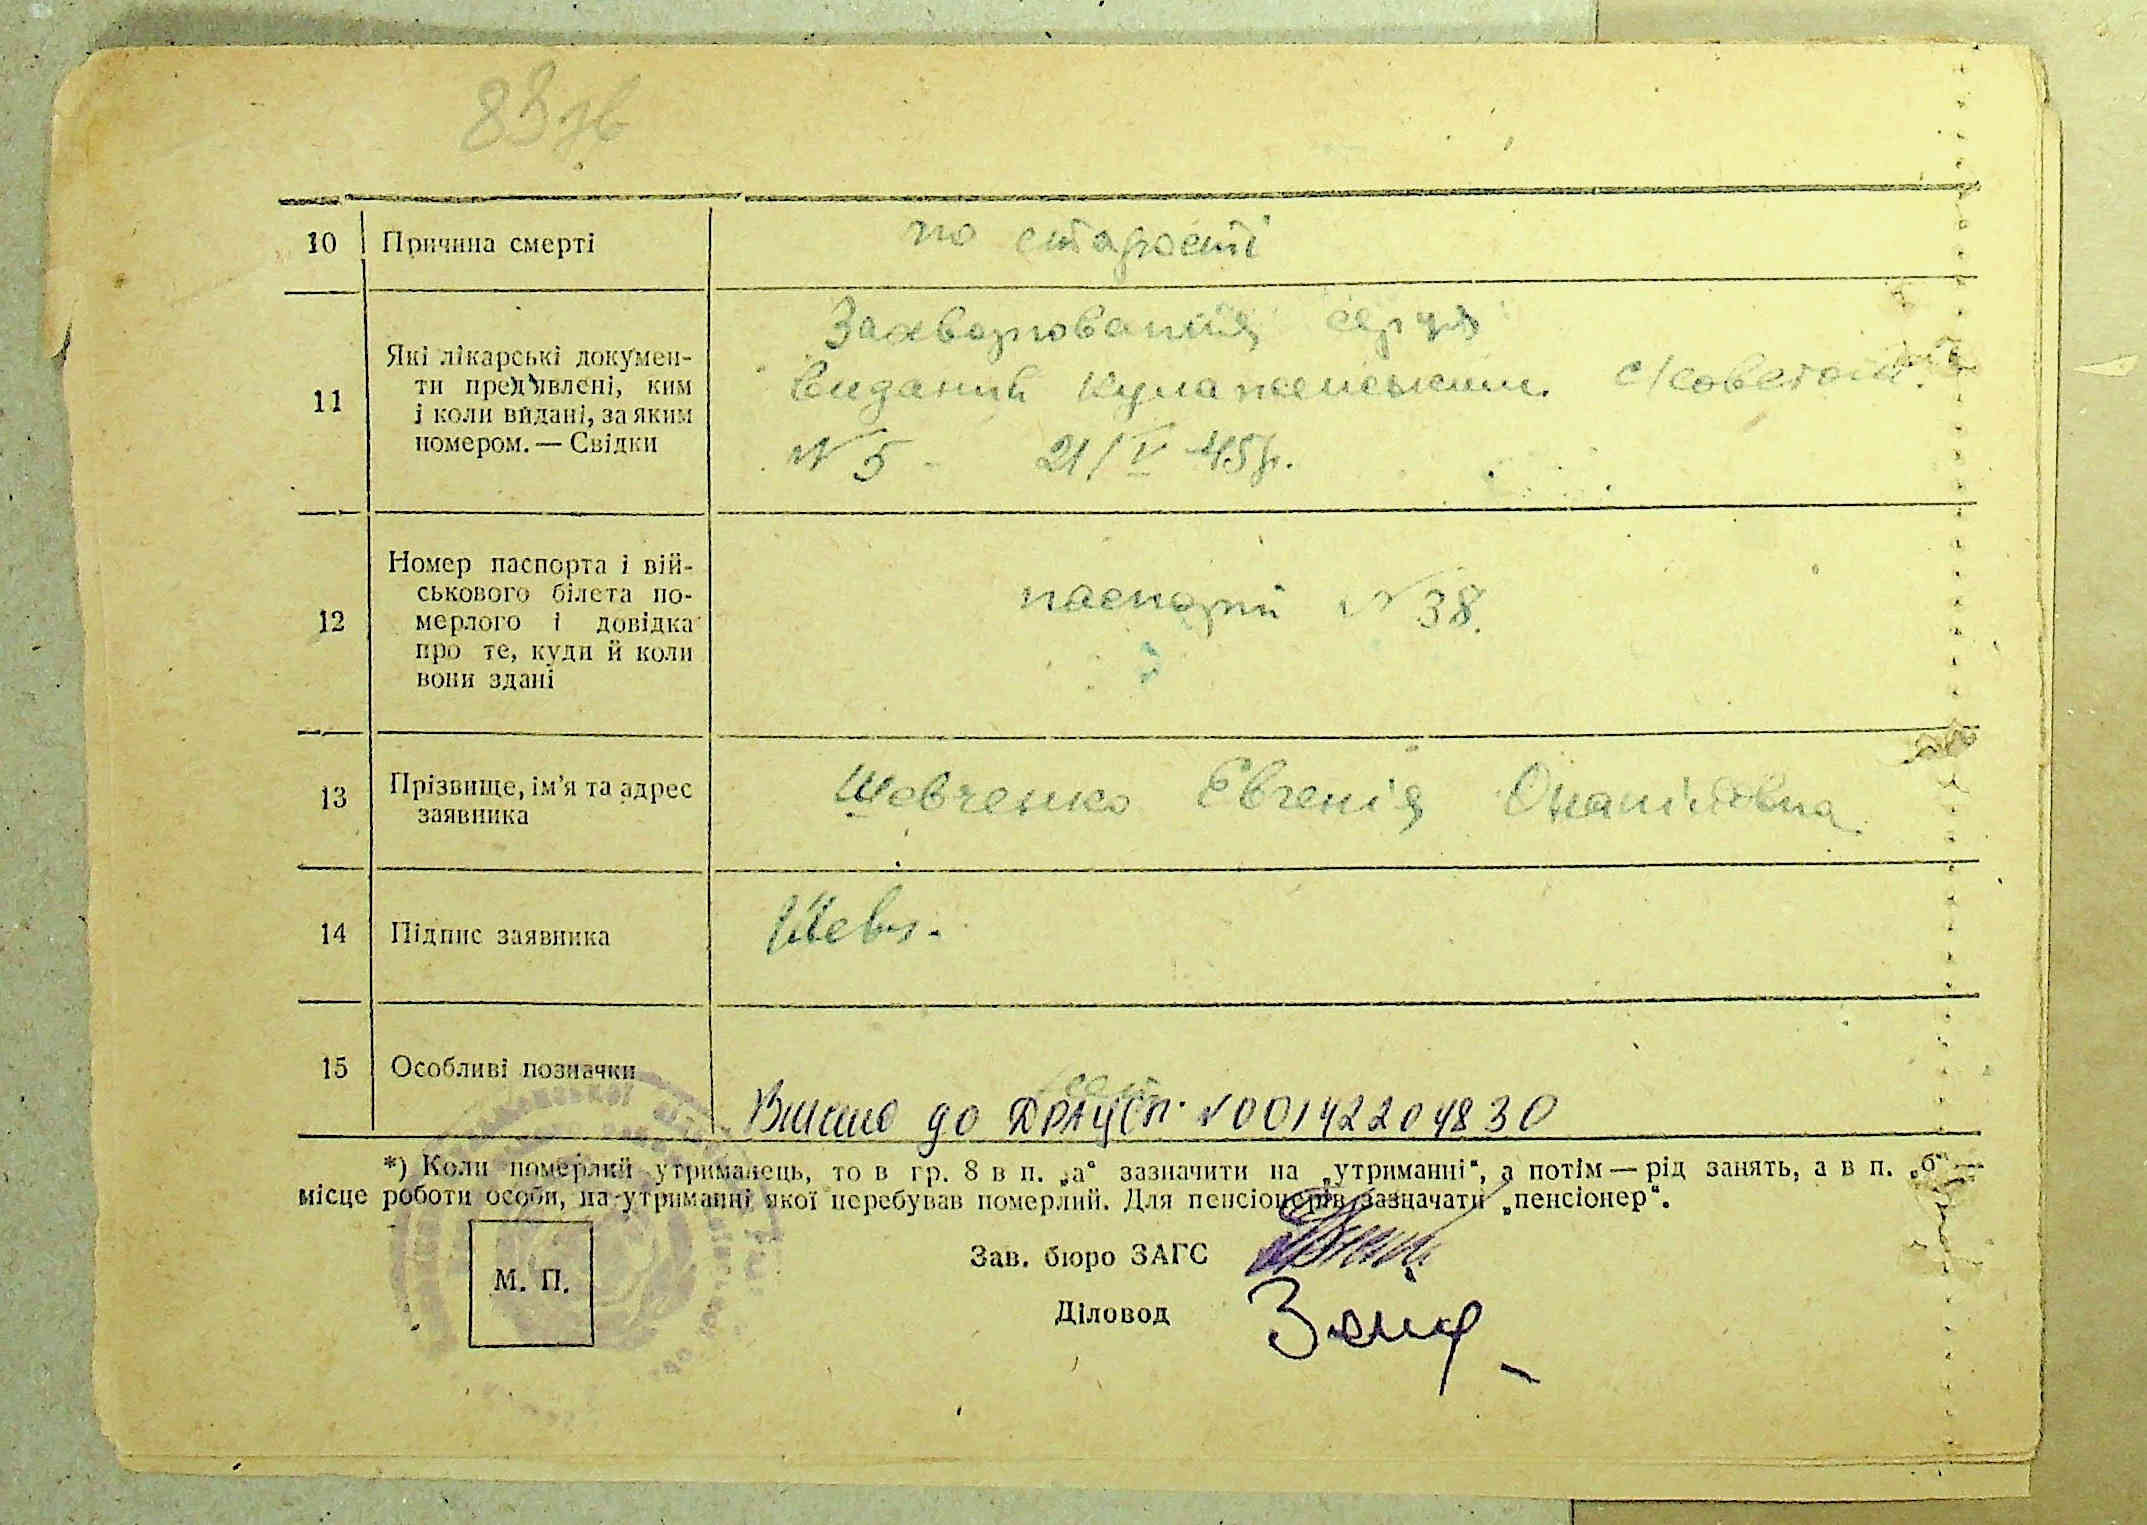 83 зв
10 Причина смерті по старості
11 Які лікарські докумен-
ти пред'явлені, ким
і коли видані, за яким
номером. — Свідки
Захворювання серця
Виданий с/советом
N 5 - 21/V 45р.
12 Номер паспорта і вій-
ськового білета по-
мерлого і довідка
про те, куди й коли
вони здані
паспорт N 38.
13 Прізвище, ім'я та адрес
заявника
Шевченко Євгенія
14 Підпис заявника Шевч.
15 Особливі позначки
Внесено до ДРАЦСГ N 00142204830
*) Коли померлий утриманець, то в гр. 8 в п. „а“ зазначити на „утриманні“, а потім — рід занять, а в п. „б“ —
місце роботи особи, на утриманні якої перебував померлий. Для пенсіонерів зазначати „пенсіонер“.
Зав. бюро ЗАГС
М. П.
Діловод